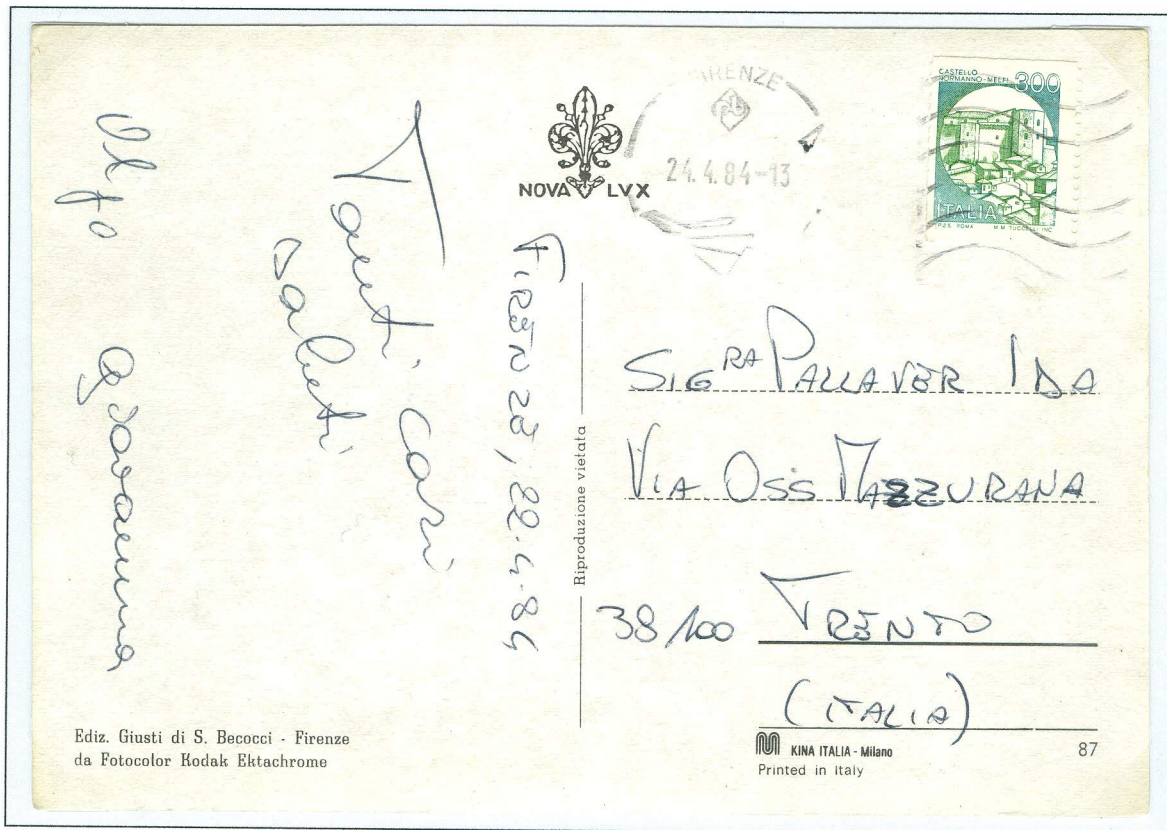 FIRENZE
24.4.84-13
CASTELLO
NORMANNO-MELFI 300
ITALIA
I.P.Z.S. ROMA M.M. TUCCELLI INC.
NOVA LVX
FIRENZE, 22.4.84
Tanti cari
saluti
Giovanna
Riproduzione vietata
SIG.RA PALLAVER IDA
VIA OSS MAZZURANA
38100 TRENTO
(ITALIA)
Ediz. Giusti di S. Becocci - Firenze
da Fotocolor Kodak Ektachrome
KINA ITALIA - Milano
Printed in Italy
87